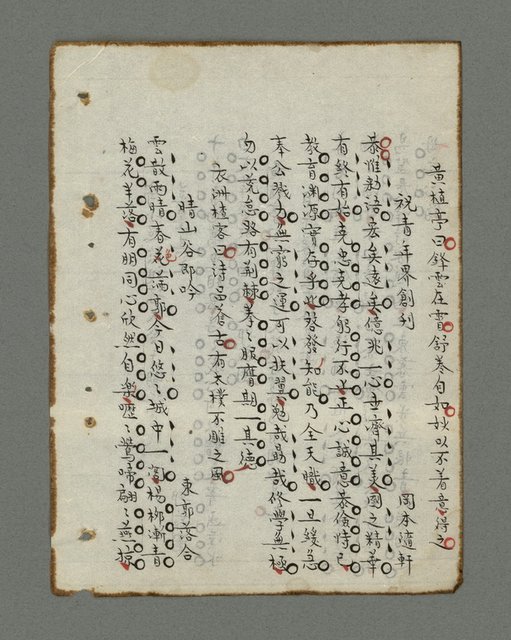 黃植亭曰鋒雲在霄舒卷自如妙以不着意得之
祝青年界創刊　岡本隨軒
恭惟勅語宏矣遠矣億兆一心世濟其美國之精華
有終有始克忠克孝躬行不正心誠意恭儉恃已
教育淵源實存乎此啓發知能乃全天職一旦緩急
奉公戮力無窮之運可以扶翼勉哉勗哉修學無極
勿以荒怠路有荊棘拳々服膺期一其德
衣洲桂客曰詩品蒼古有太樸不雕之風
晴山谷即吟　東郭落合
雲散雨晴春花滿郭今日悠々城中一閣楊柳漸青
梅花半落有朋同心欣然自樂嚶々鶯啼翩々燕掠